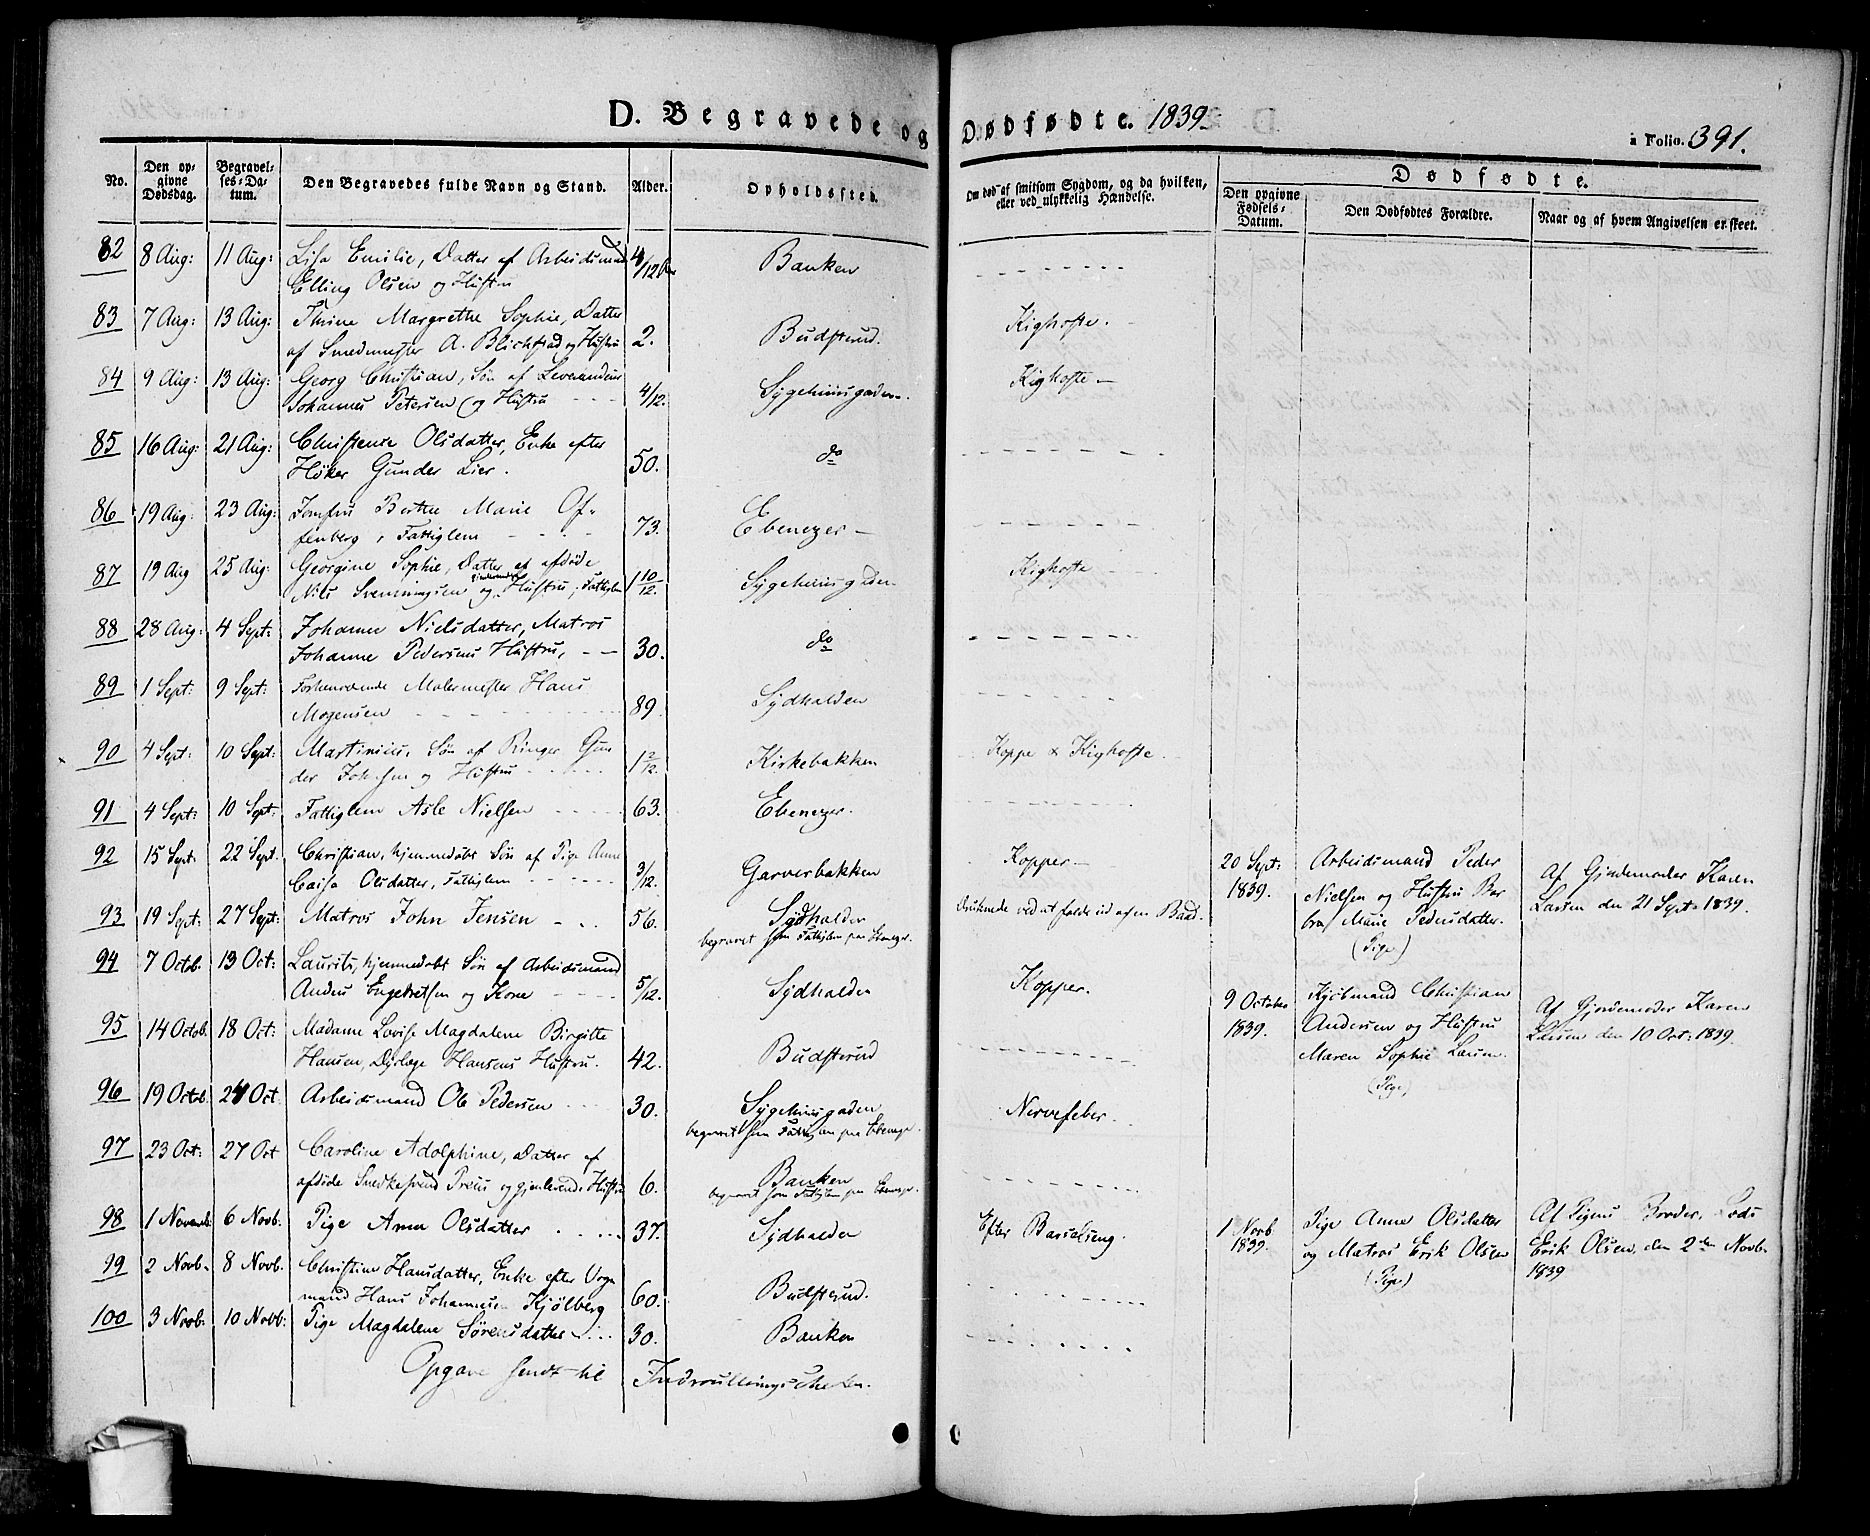 D. Begravede og Dødfødte. 1839.
a Folio. 391.
No.
Den opgivne Dødsdag.
Begravelses-Datum.
Den Begravedes fulde Navn og Stand.
Alder.
Opholdssted.
Om død af smitsom Sygdom, og da hvilken, eller ved ulykkelig Hændelse.
Dødfødte.
Den opgivne Fødsels-Datum.
Den Dødfødtes Forældre.
Naar og af hvem Angivelsen er skeet.
82 8 Aug: 11 Aug: Lisa Emilie, Datter af Arbeidsmand 4/12 Banken
Elling Olsen og Hustru
83 7 Aug: 13 Aug: Thrine Margrethe Sophie, Datter
af Smedmester A. Blichfeld og Hustru 2. Budsterud. Kighoste.
84 9 Aug: 13 Aug: Georg Christian, Søn af
Johannes Petersen og Hustru 4/12. Sygehuusgaden. Kighoste
85 16 Aug: 21 Aug: Christense Olsdatter, Enke efter
Høker Gunder Lier. 50. do
86 19 Aug: 23 Aug: Jomfru Berthe Marie Of-
fenberg, Fattiglem 73. Ebenezer
87 19 Aug 25 Aug: Georgine Sophie, Datter af afdøde
Nils Svenningsen og gjenlevende Hustru, Fattiglem 1 10/12. Sygehuusgaden Kighoste
88 28 Aug: 4 Sept: Johanne Nielsdatter, Matros
Johanne Pedersens Hustru, 30. do
89 1 Sept: 9 Sept: Forhenværende Malermester Hans
Mogensen 89. Sydhalden
90 4 Sept: 10 Sept: Martinius, Søn af Ringer Gun
der Johnsen og Hustru Kirkebakken Koppe & Kighoste.
91 4 Sept: 10 Sept: Fattiglem Asle Nielsen 63. Ebenezer.
92 15 Sept: 22 Sept. Christian, hjemmedøbt Søn af Pige Anne
Caisa Olsdatter, Fattiglem 3/12. Garverbakken Kopper.
93 19 Sept: 27 Sept: Matros John Jensen 56. Sydhalden Druknede ved at falde ud af en Baad.
begravet som Fattiglem paa Ebenezer.
94 7 Octob. 13 Oct: Laurits, hjemmedøbt Søn af Arbeidsmand
Anders Engebretsen og Kone 5/12. Sydhalden Kopper.
95 14 Octob. 18 Oct: Madame Lovise Magdalene Birgitte
Hansen, Dyrlæge Hansens Hustru. 42. Budsterud
96 19 Octob. 24 Oct. Arbeidsmand Ole Pedersen 30. Sygehuusgaden Nervefeber
begravet som Fattiglem paa Ebenezer
97 23 Oct: 27 Oct Caroline Adolphine, Datter af
afdøde Snedkersvend Preus og gjenlevende Hustru 6. Banken
begravet som Fattiglem paa Ebenezer.
98 1 Novemb: 6 Novb. Pige Anne Olsdatter 37. Sydhalden Efter Barselseng.
99 2 Novb. 8 Novb. Christine Hansdatter, Enke efter Vogn
mand Hans Johannesen Kjølberg 60. Budsterud.
100 3 Novb. 10 Novb: Pige Magdalene Sørensdatter 30. Banken
Opgave sendt til
20 Sept: 1839.
Arbeidsmand Peder
Nielsen og Hustru Bar
bra Marie Pedersdatter.
(Pige)
Af Gjordemoder Karen
Larsen den 21 Sept: 1839.
9 October 1839.
Kjøbmand Christian
Andersen og Hustru
Maren Sophie Larsen.
(Pige)
Af Gjordemoder Karen
Larsen den 10 Oct: 1839.
1 Novb 1839.
Pige Anne Olsdatter
og Matros Erik Olsen
(Pige)
Af Pigens Broder, Lods
Erik Olsen, den 2den Novb.
1839